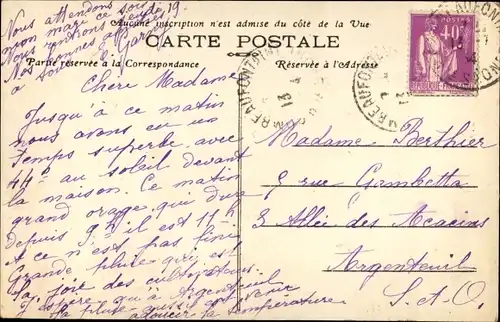 Aucune inscription n'est admise du côté de la Vue
CARTE POSTALE
Partie réservée à la Correspondance
Réservée à l'Adresse
Nous attendons
mon mari ce soir
Nous rentrons le 19
Nos amitiés
G. Garnier
Chère Madame
Jusqu'à ce matin
nous avons eu un
temps superbe avec
44° au soleil devant
la maison. Ce matin
grand orage qui dure
depuis 9h il est 11h
et ce n'est pas fini
Grande pluie qui est
la joie des cultivateurs
J'espère qu'à Argenteuil
la pluie aussi est venue
adoucir la température
Madame Berthier
5 rue Gambetta
3 Allée des Acacias
Argenteuil
S.-et-O.
40c